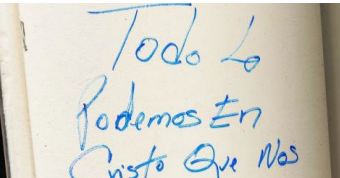 Todo Lo
Podemos En
Cristo Que Nos